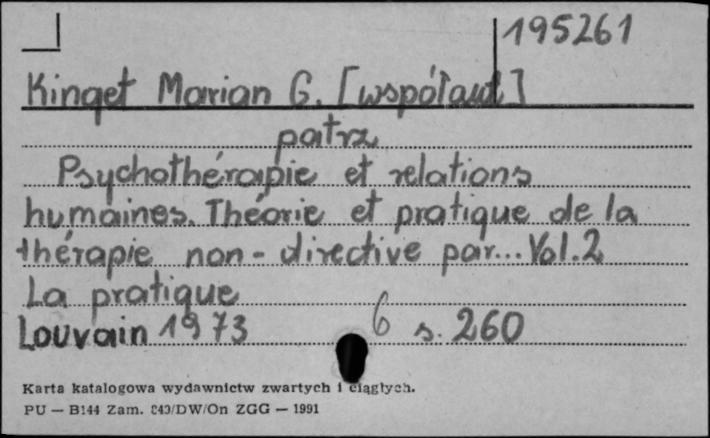 195261
Kinget Marian G. [współaut]
patrz
Psychothérapie et relations
humaines. Théorie et pratique de la
thérapie non-directive par... Vol.2
La pratique
Louvain 1973 6 s. 260
Karta katalogowa wydawnictw zwartych i ciągłych.
PU — B144 Zam. 843/DW/On ZGG — 1991